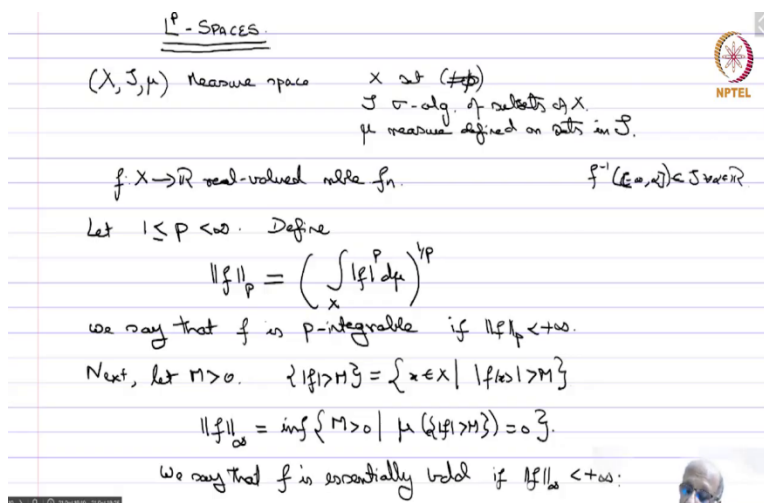 L^p - SPACES.
NPTEL
(X, S, μ) Measure space X set (≠φ)
S σ-alg. of subsets of X.
μ measure defined on sets in S.
f: X→ℝ real-valued mble fn. f⁻¹([-∞,α])∈S ∀α∈ℝ
Let 1≤p<∞. Define
‖f‖_p = (∫_X |f|^p dμ)^{1/p}
we say that f is p-integrable if ‖f‖_p<+∞.
Next, let M>0. {|f|>M} = {x∈X | |f(x)|>M}
‖f‖_∞ = inf{M>0 | μ({|f|>M})=0}.
We say that f is essentially bdd if ‖f‖_∞<+∞.